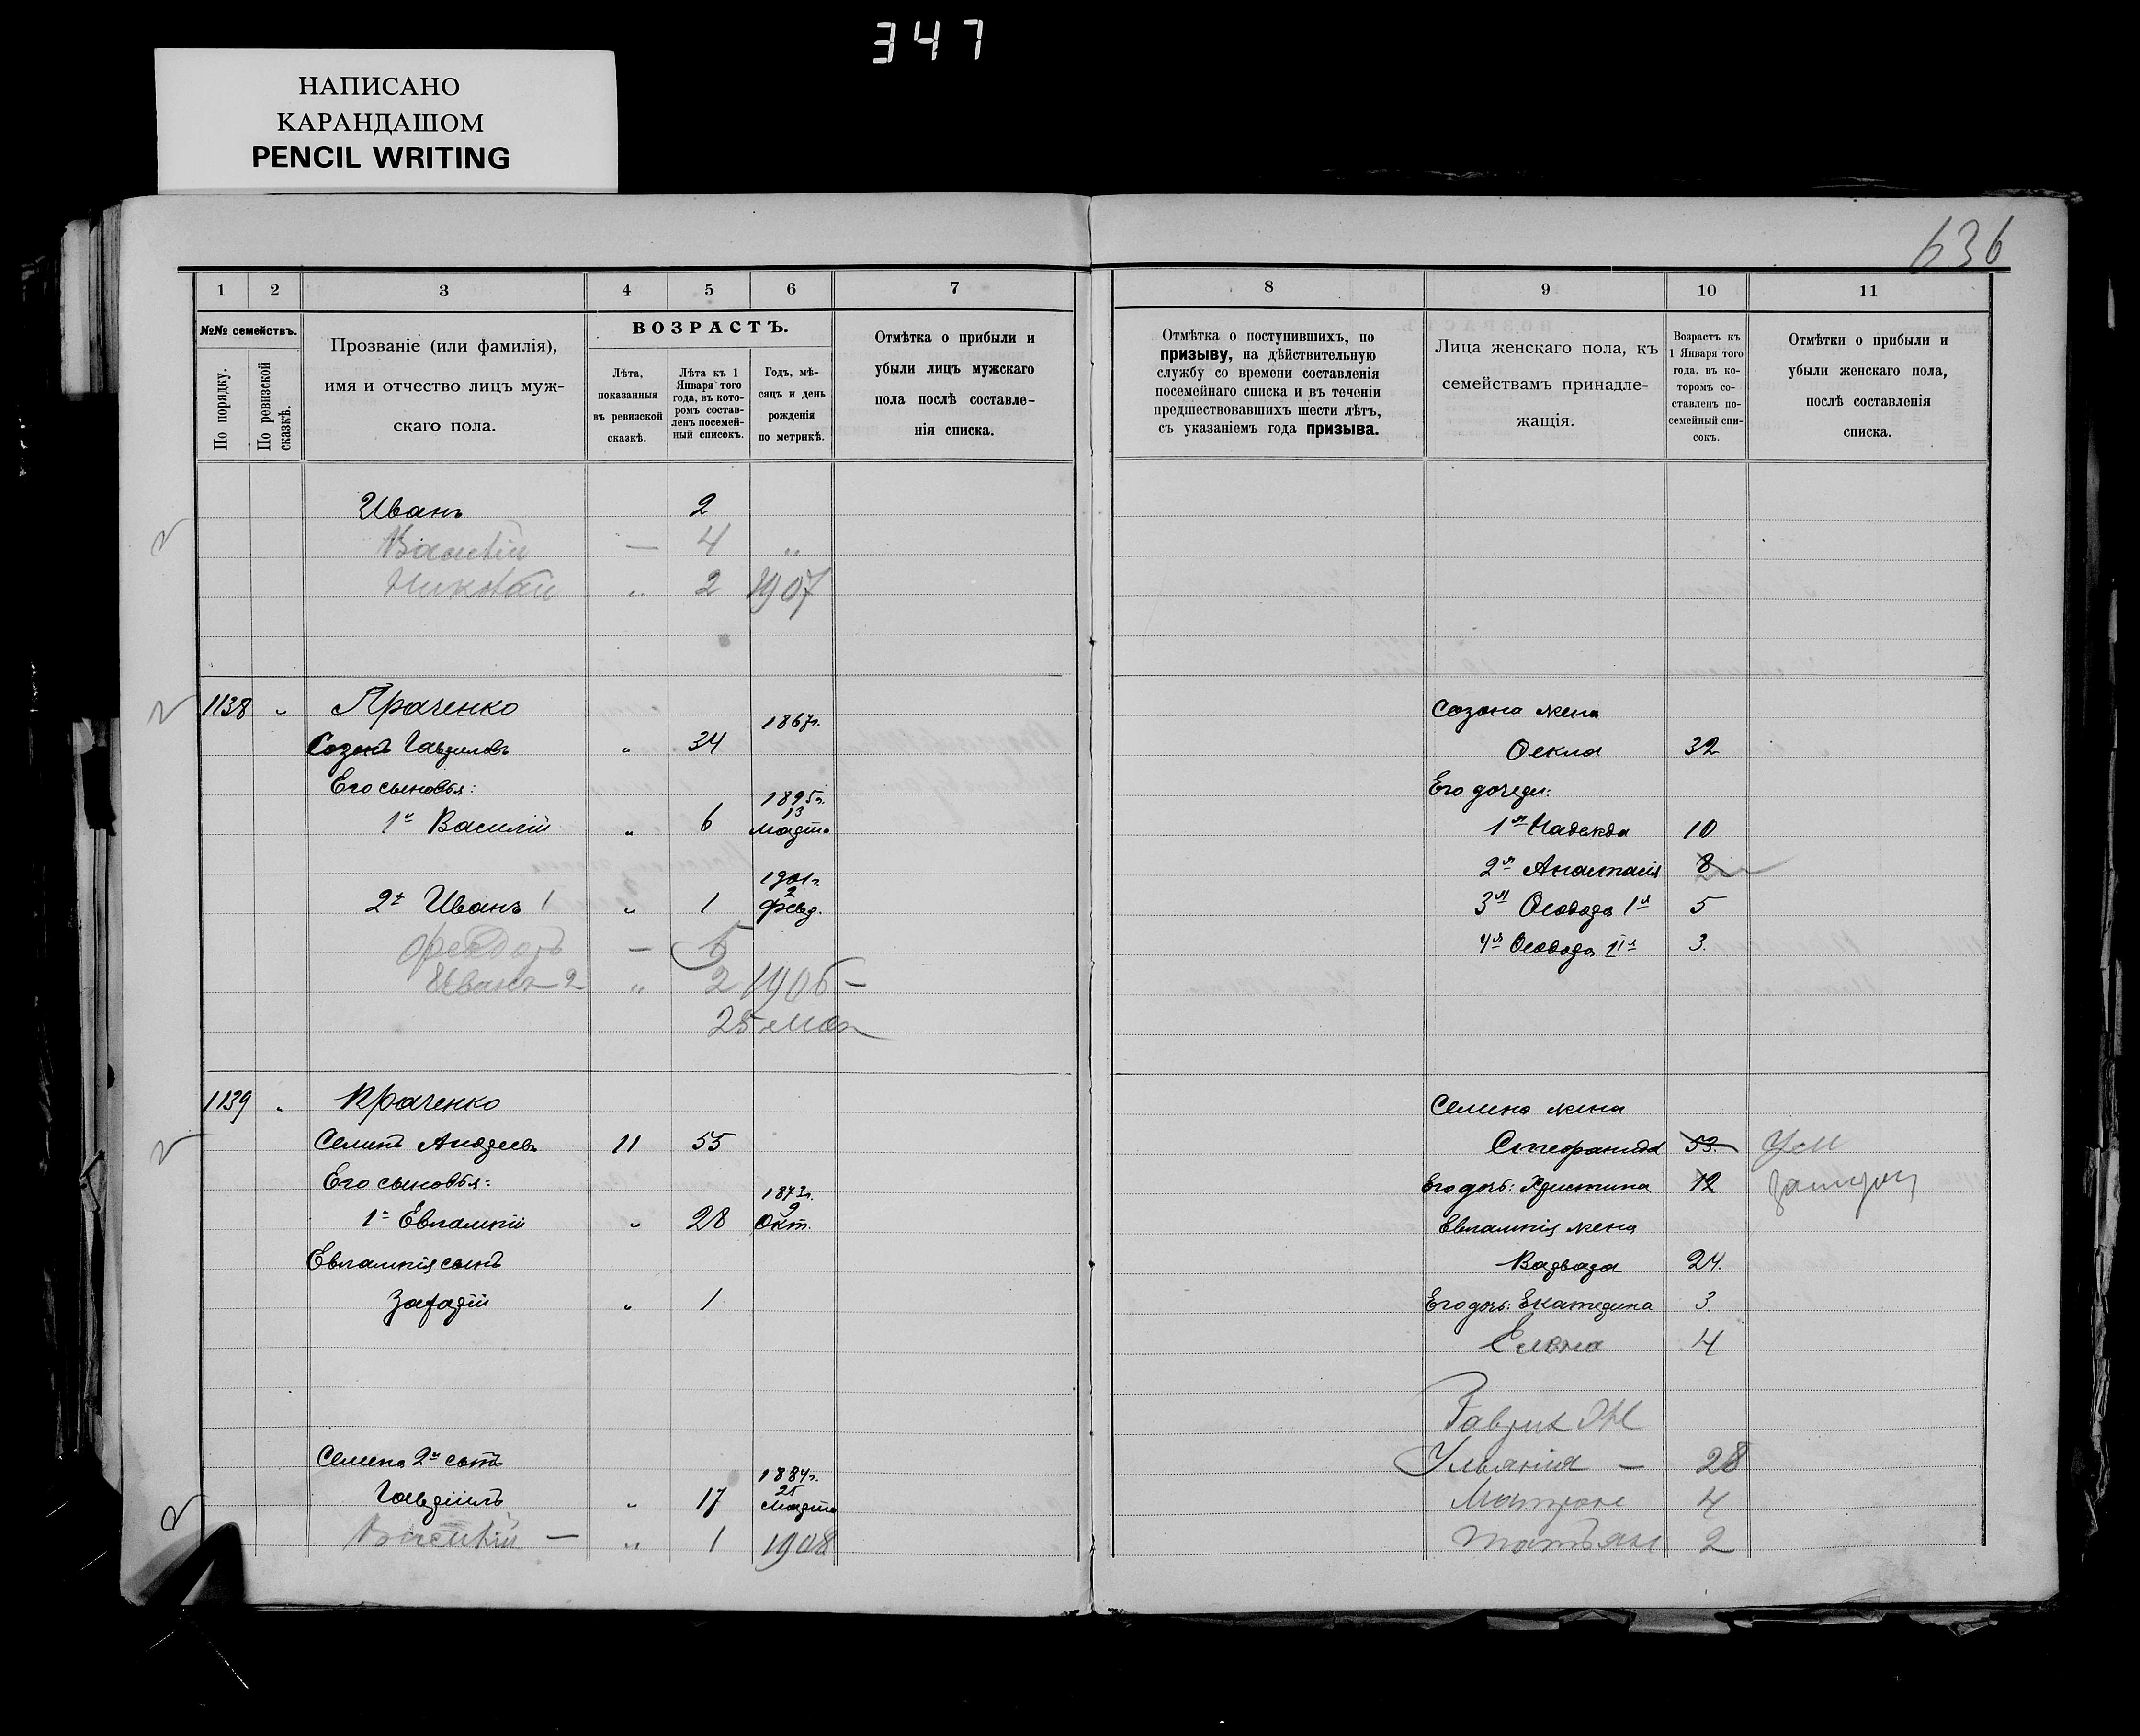 347
НАПИСАНО
КАРАНДАШОМ
PENCIL WRITING
636
1 2 3 4 5 6 7
№№ семействъ.
По порядку.
По ревизской сказкѣ.
Прозваніе (или фамилія),
имя и отчество лицъ муж-
скаго пола.
ВОЗРАСТЪ.
Лѣта,
показанныя
въ ревизской
сказкѣ.
Лѣта къ 1
Января того
года, въ кото-
ромъ состав-
ленъ посемей-
ный списокъ.
Годъ, мѣ-
сяцъ и день
рожденія
по метрикѣ.
Отмѣтка о прибыли и
убыли лицъ мужскаго
пола послѣ составле-
нія списка.
Иванъ 2
Василій — 4 „
Николай „ 2 1907
1138 „ Праченко
1867г.
Созонъ Гавриловъ „ 34
Его сыновья:
1895г.
13
1й Василій „ 6 Марта
1901г.
2
2й Иванъ 1 „ 1 Февр.
Федоръ — 5
Иванъ 2 „ 2 1906 —
25 Мая
1139 „ Праченко
Семенъ Андреевъ 11 55
Его сыновья:
1873г.
9
1й Евлампій „ 28 Окт.
Евлампія сынъ
Захарій „ 1
Семена 2й сынъ
1884г.
25
Гавріилъ „ 17 Марта
Василій — „ 1 1908
8 9 10 11
Отмѣтка о поступившихъ, по
призыву, на дѣйствительную
службу со времени составленія
посемейнаго списка и въ теченіи
предшествовавшихъ шести лѣтъ,
съ указаніемъ года призыва.
Лица женскаго пола, къ
семействамъ принадле-
жащія.
Возрастъ къ
1 Января того
года, въ ко-
торомъ со-
ставленъ по-
семейный спи-
сокъ.
Отмѣтки о прибыли и
убыли женскаго пола,
послѣ составленія
списка.
Созона жена
Ѳекла 32
Его дочери:
1я Надежда 10
2я Анастасія 8
3я Ѳеодора 1я 5
4я Ѳеодора IIя 3.
Семена жена
Стефанида 53. Ум
Его дочь: Христина 12 Замуж
Евлампія жена
Варвара 24.
Его дочь: Екатерина 3.
Елена 4
Гаврил
Ульянія — 28
Матрона 4
Татьяна 2